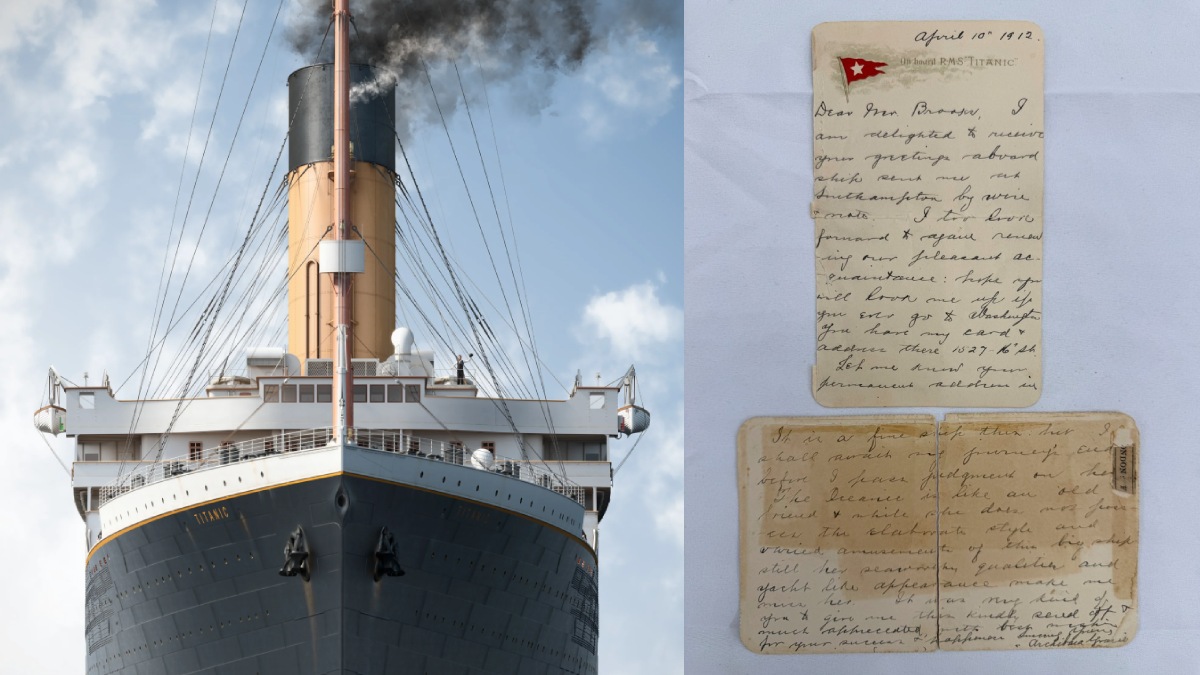 TITANIC
April 10th 1912.
On board R.M.S "TITANIC"
Dear Mr. I
am delighted to receive
your greetings aboard
ship sent me at
Southampton by wire
& note. I too look
forward to again renew
ing our pleasant ac-
quaintance: hope you
will look me up if
you ever go to Washington
You have my card &
address there 1527 16" st.
Let me know your
permanent address in
It is a fine ship this but I
shall await my journeys end
before I pass judgment on her
The Oceanic is like an old
friend & while she does not poss
ess the elaborate style and
varied amusements of this big ship
still her seaworthy qualities and
yacht like appearance make me
miss her. It was very kind of
you to give me this kindly send off &
much appreciated with best wishes
for your success & happiness
Archibald Gracie